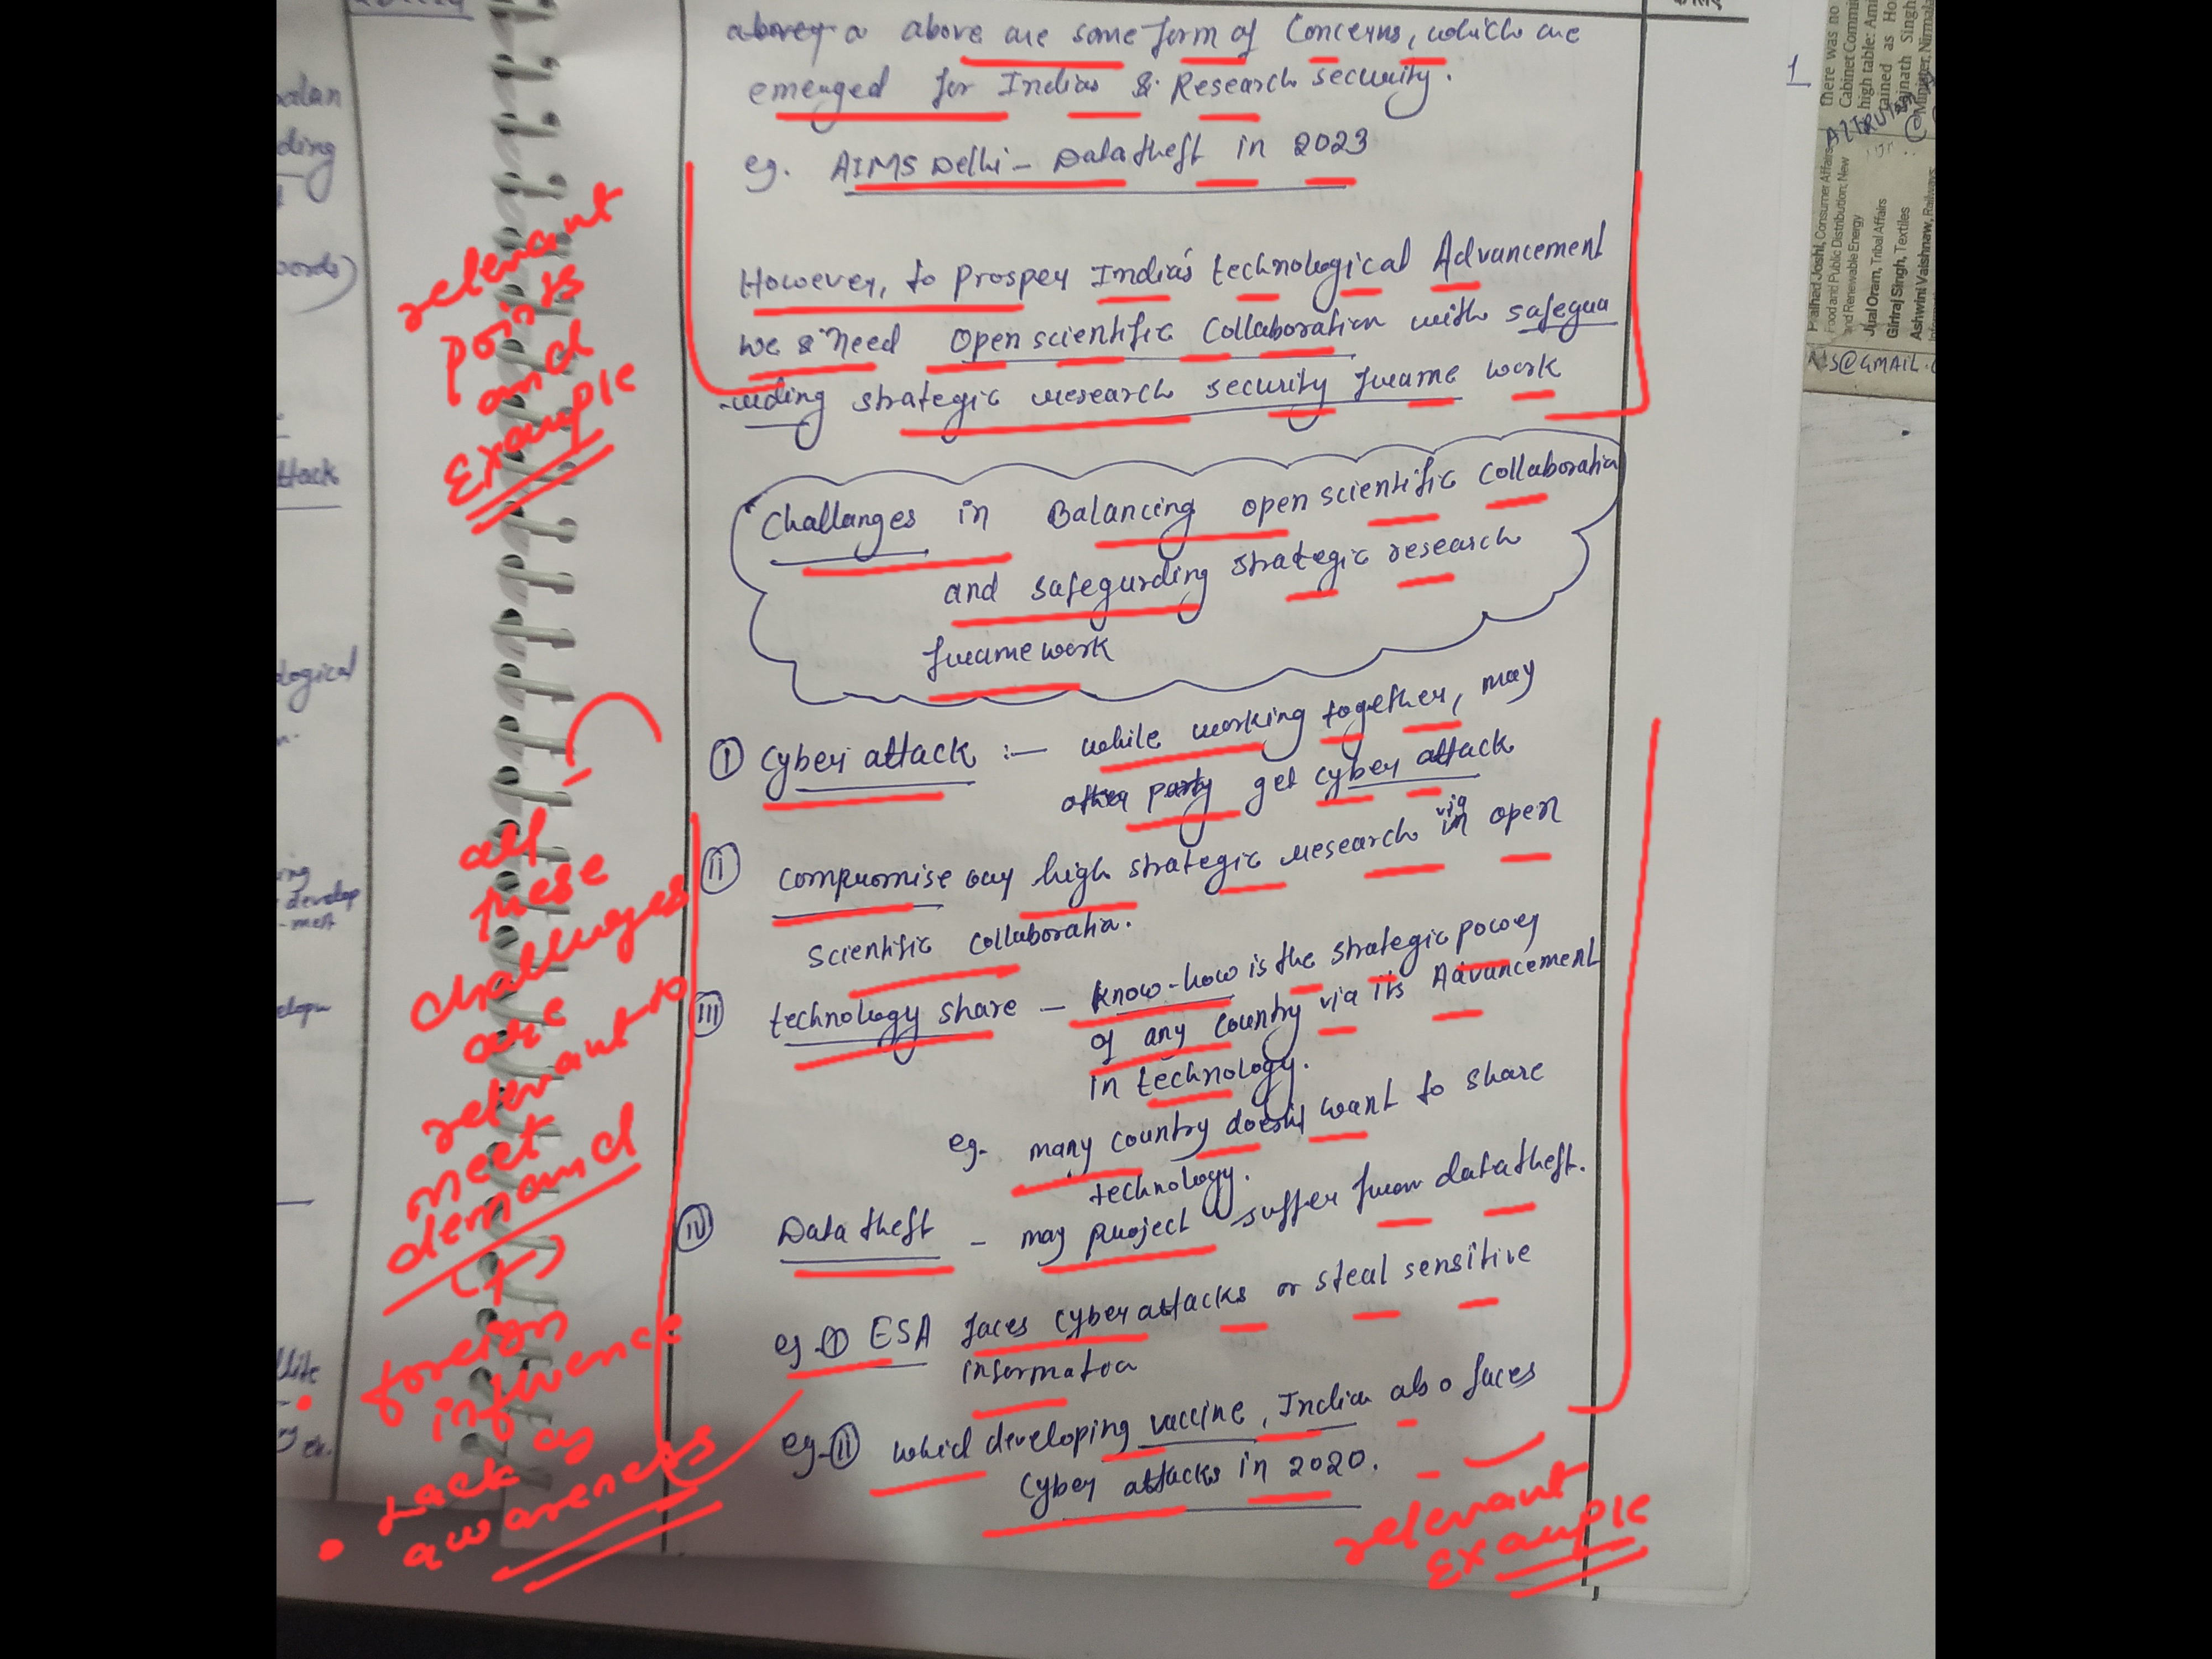 above are some form of Concerns, which are
emerged for India's & Research security.
eg. AIMS Delhi - Data theft in 2023
However, to prosper India's technological Advancement
we need Open scientific Collaboration with safegua
-rding strategic research security frame work
Challanges in Balancing open scientific Collaboratia
and safegurding strategic research
frame work
① Cyber attack :— while working together, may
other party get cyber attack
② Compromise any high strategic research via open
Scientific Collaboratia.
③ technology share — know-how is the strategic power
of any country via its Advancement
in technology.
eg. many country doesn't want to share
technology.
④ Data theft - may project suffer from data theft.
eg ① ESA faces Cyber attacks or steal sensitive
informatoa
eg-② which developing vaccine, India also faces
Cyber attacks in 2020.
relevant
points
and
Example
all
these
challenges
are
relevant to
meet
demand
(+)
foreign
influence
• Lack of
awareness
relevant
Example
alan
ding
ords)
ttack
logical
ing
- develop
- ment
1
there was no
Cabinet Commi
high table: Ami
tained as Ho
ajnath Singh
Minister, Nirmala
Pralhad Joshi, Consumer Affairs
Food and Public Distribution; New
and Renewable Energy
Jual Oram, Tribal Affairs
Giriraj Singh, Textiles
Ashwini Vaishnaw, Railways
S@GMAIL.C